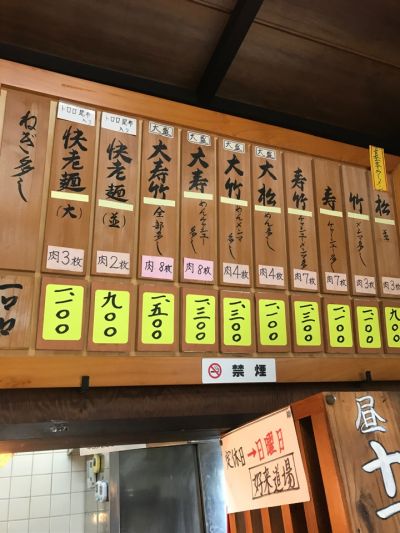 松
並
肉3枚
九〇〇
竹
メンマ多し
肉3枚
一、一〇〇
寿
チャーシュー多し
肉7枚
一、二〇〇
寿竹
チャーシューメンマ多し
肉7枚
一、三〇〇
大盛
大松
めん多し
肉4枚
一、一〇〇
大盛
大竹
めんメンマ多し
肉4枚
一、三〇〇
大盛
大寿
めんチャーシュー多し
肉8枚
一、三〇〇
大盛
大寿竹
全部多し
肉8枚
一、五〇〇
トロロ昆布入り
快老麺
(並)
肉2枚
九〇〇
トロロ昆布入り
快老麺
(大)
肉3枚
一、一〇〇
ねぎ多し
一〇〇
禁煙
定休日→日曜日
好来道場
昼
十一